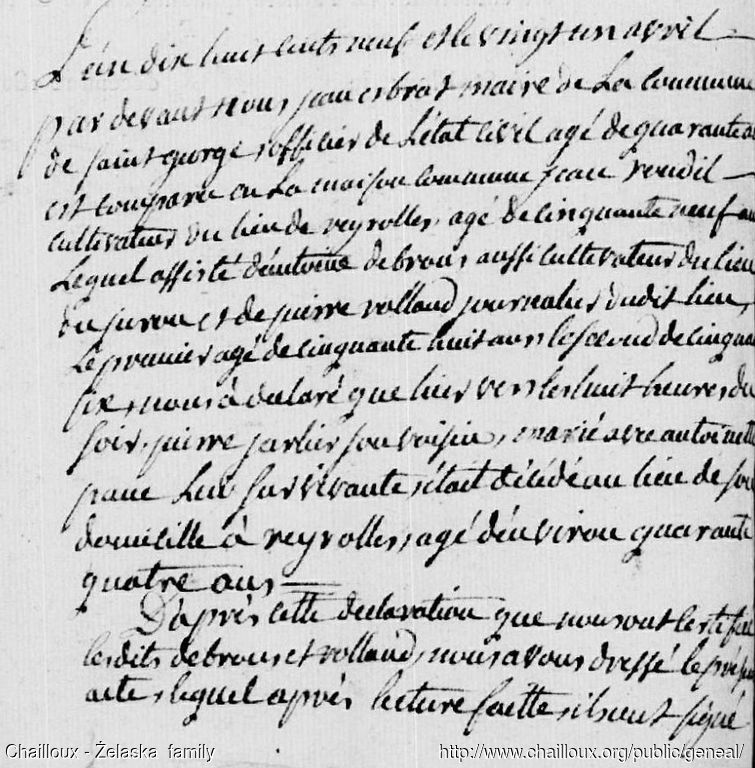 L'an dix huit cents neuf et le vingt un avril
par devant nous jean esbrat maire de La Commune
de saint george, officier de L'état civil agé de quarante
est comparu en La maison commune jean vendil
cultivateur du lieu de veyrolles, agé de cinquante neuf
Lequel assisté d'antoine debrous aussi cultivateur du lieu
du et de pierre volland journalier dudit lieu,
Le premier agé de cinquante huit ans le second de cinquan
six, nous à déclaré que hier vers les huit heures du
soir, pierre parlier son voisin, marié avec antoinette
Lui survivante s'était décédé au lieu de son
domicille à veyrolles, agé d'environ quarante
quatre ans
D'après cette declaration que nous ont certifié
lesdits debrous et volland, nous avons dressé le présent
acte, lequel après lecture faitte ils ont signé
Chailloux - Želaska family
http://www.chailloux.org/public/geneal/